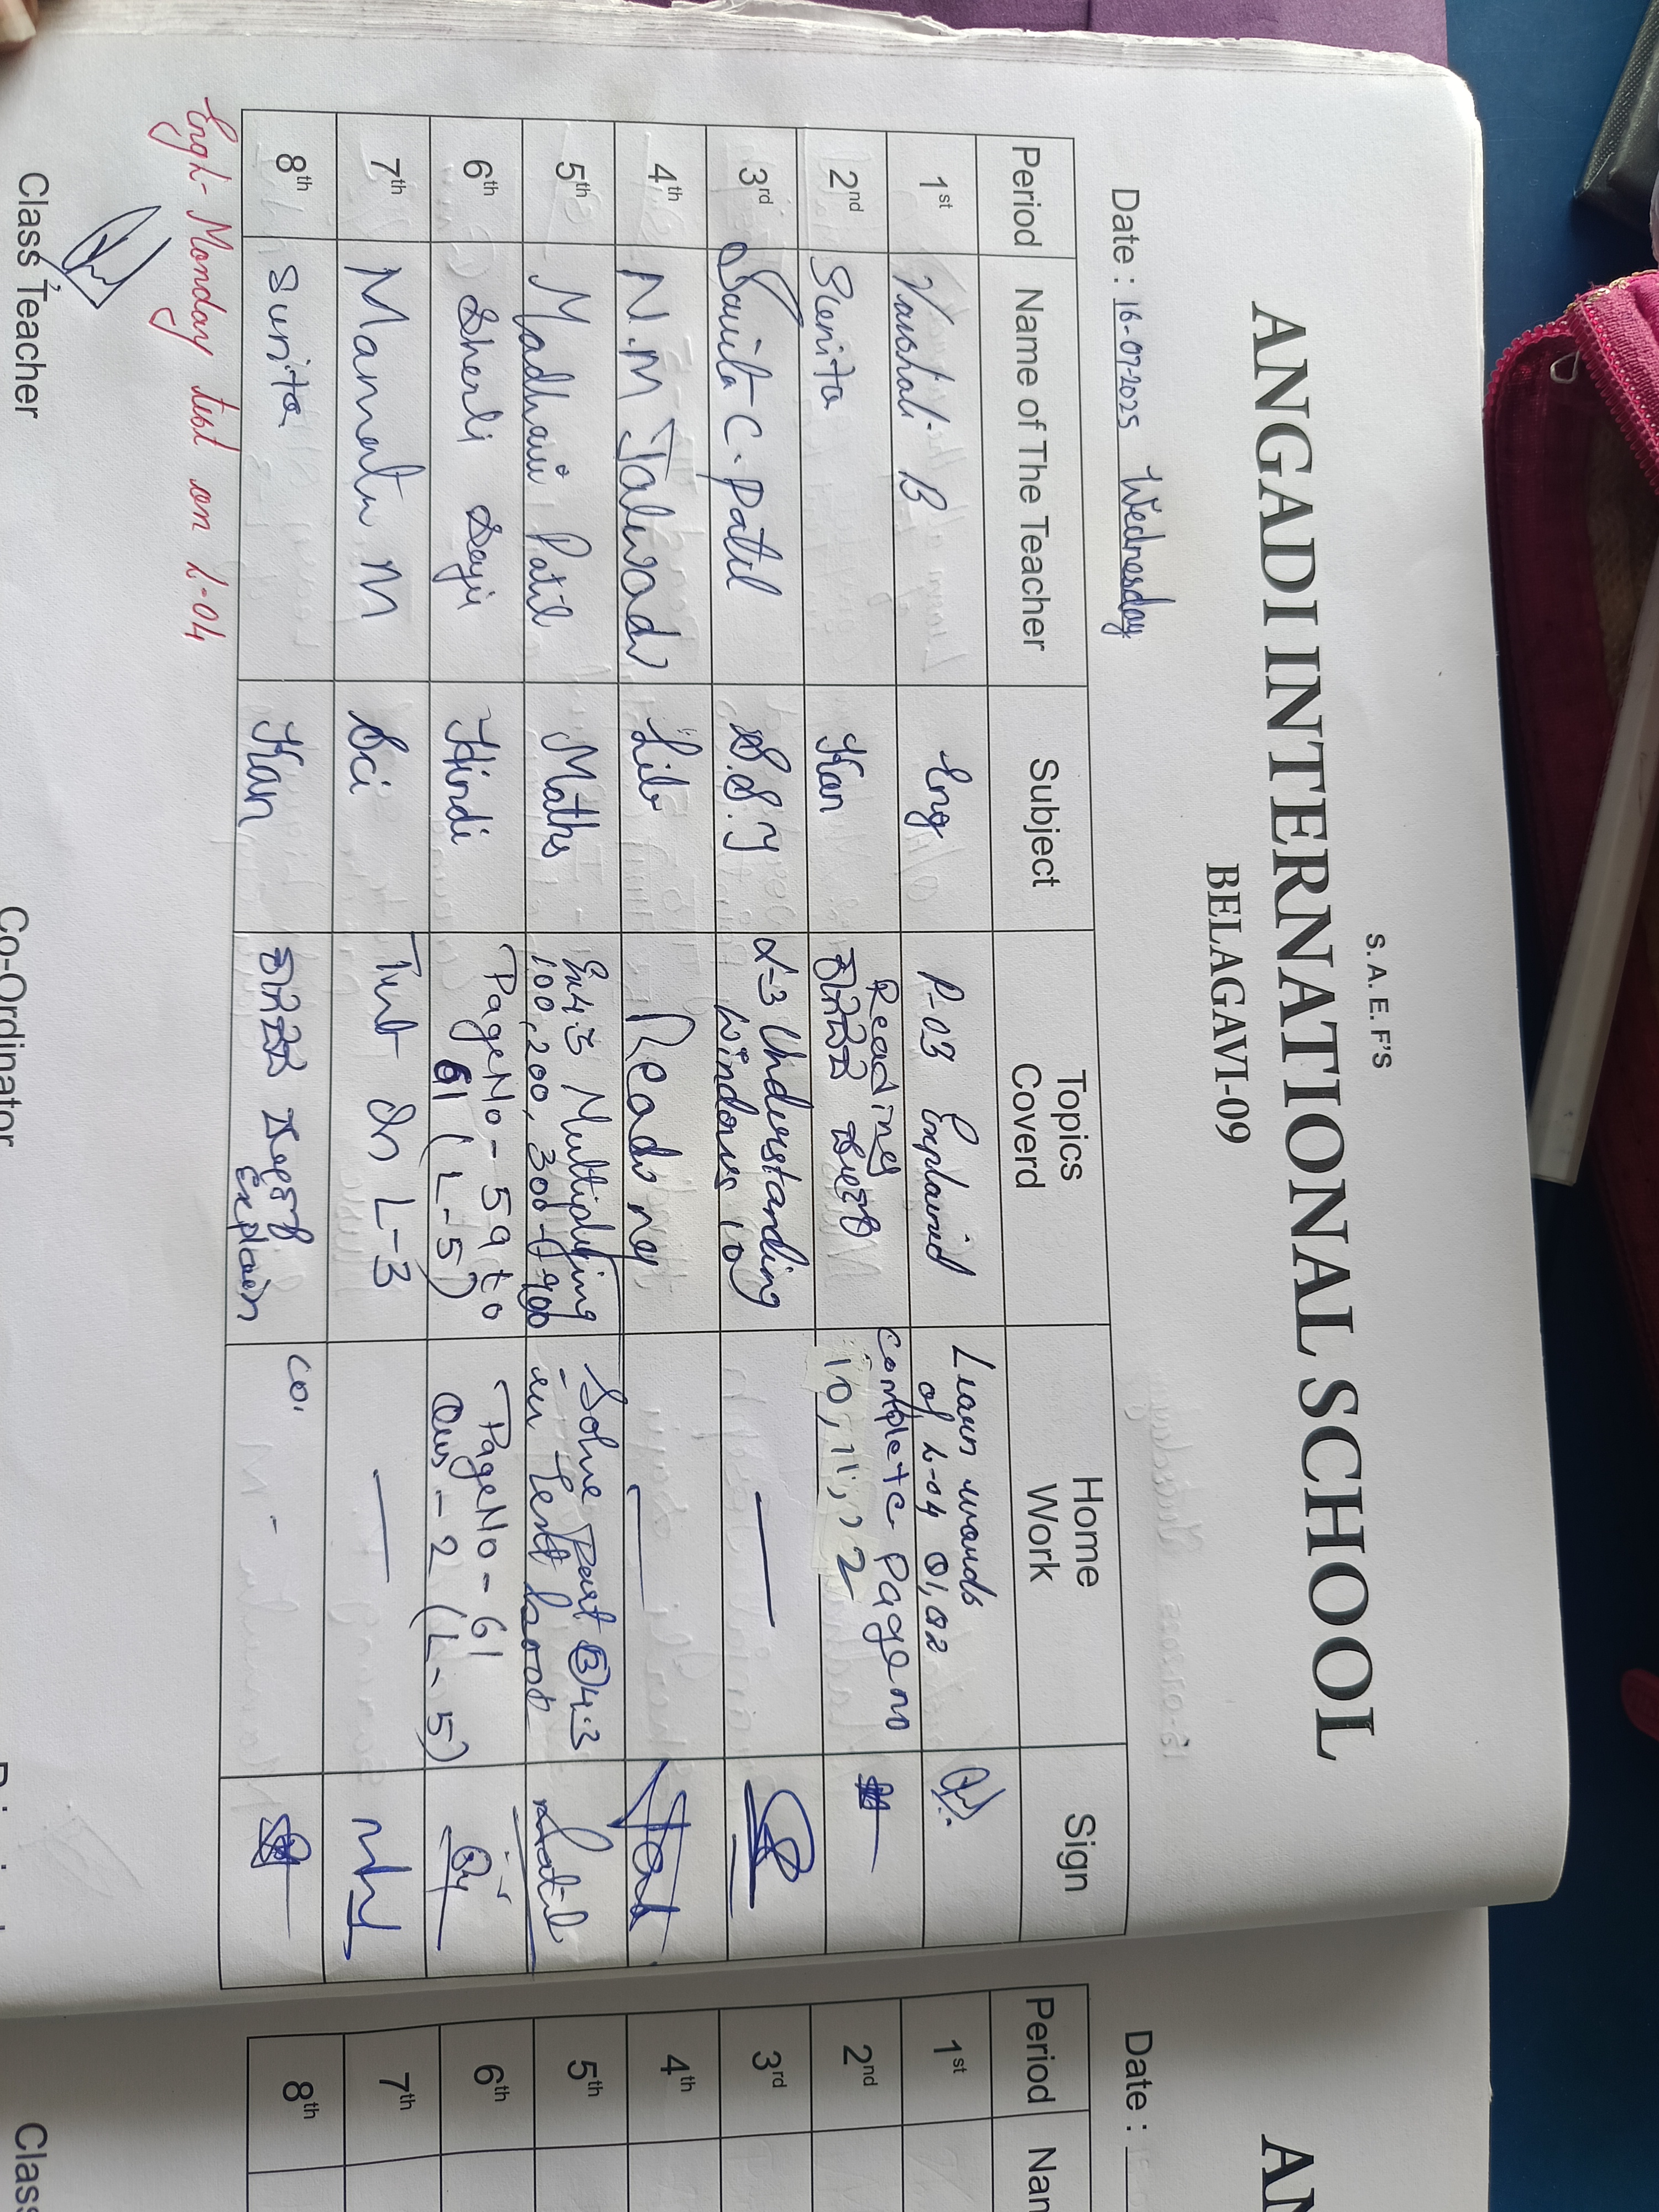 S. A. E. F'S
ANGADI INTERNATIONAL SCHOOL
BELAGAVI-09
Date : 16-07-2025 Wednesday
Period Name of The Teacher Subject Topics Coverd Home Work Sign
1st Vaishali B Eng P-03 Explained Learn words of L-04 01,02
2nd Sunita Kan Reading complete Page no 10, 11,
3rd Savita C. Patil S.S.Y L-3 Understanding Windows 10 —
4th N.M Talwad Lib Reading —
5th Madhavi Patil Maths Ex4.3 Multiplying 100, 200, 300-900 Solve Part B 4.3 in Text book Patil
6th Sherli Hindi Page No - 59 to 61 (L-5) Page No - 61 Q - 2 (L-5)
7th Mamata M Sci Test On L-3 —
8th Sunita Kan ಕನ್ನಡ Explain co.
Engl- Monday test on L-04
Class Teacher Co-Ordinator
AN
Date :
Period Nam
1st
2nd
3rd
4th
5th
6th
7th
8th
Class